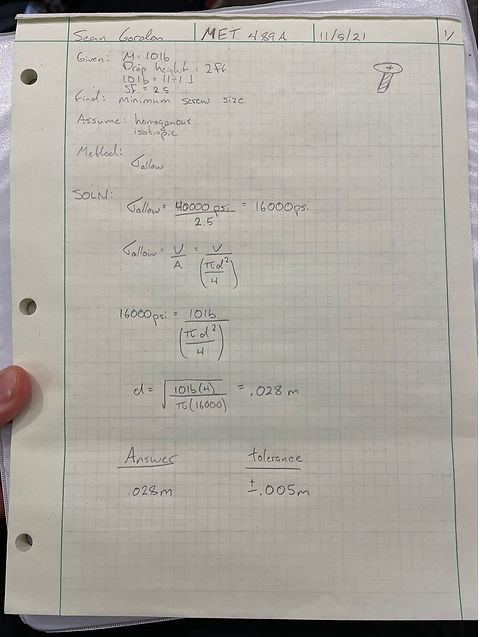 Sean Gordon MET 489A 11/5/21 1/
Given: M = 10lb
Drop height = 2ft
SF. = 2.5
Find: minimum screw size
Assume: homogenous
isotropic
Method:
σallow
SOLN:
σallow = 40000 psi / 2.5 = 16000psi
σallow = V / A = V / (πd² / 4)
16000psi = 10lb / (πd² / 4)
d = √(10lb(4) / π(16000)) = .028 m
Answer tolerance
.028m ± .005m